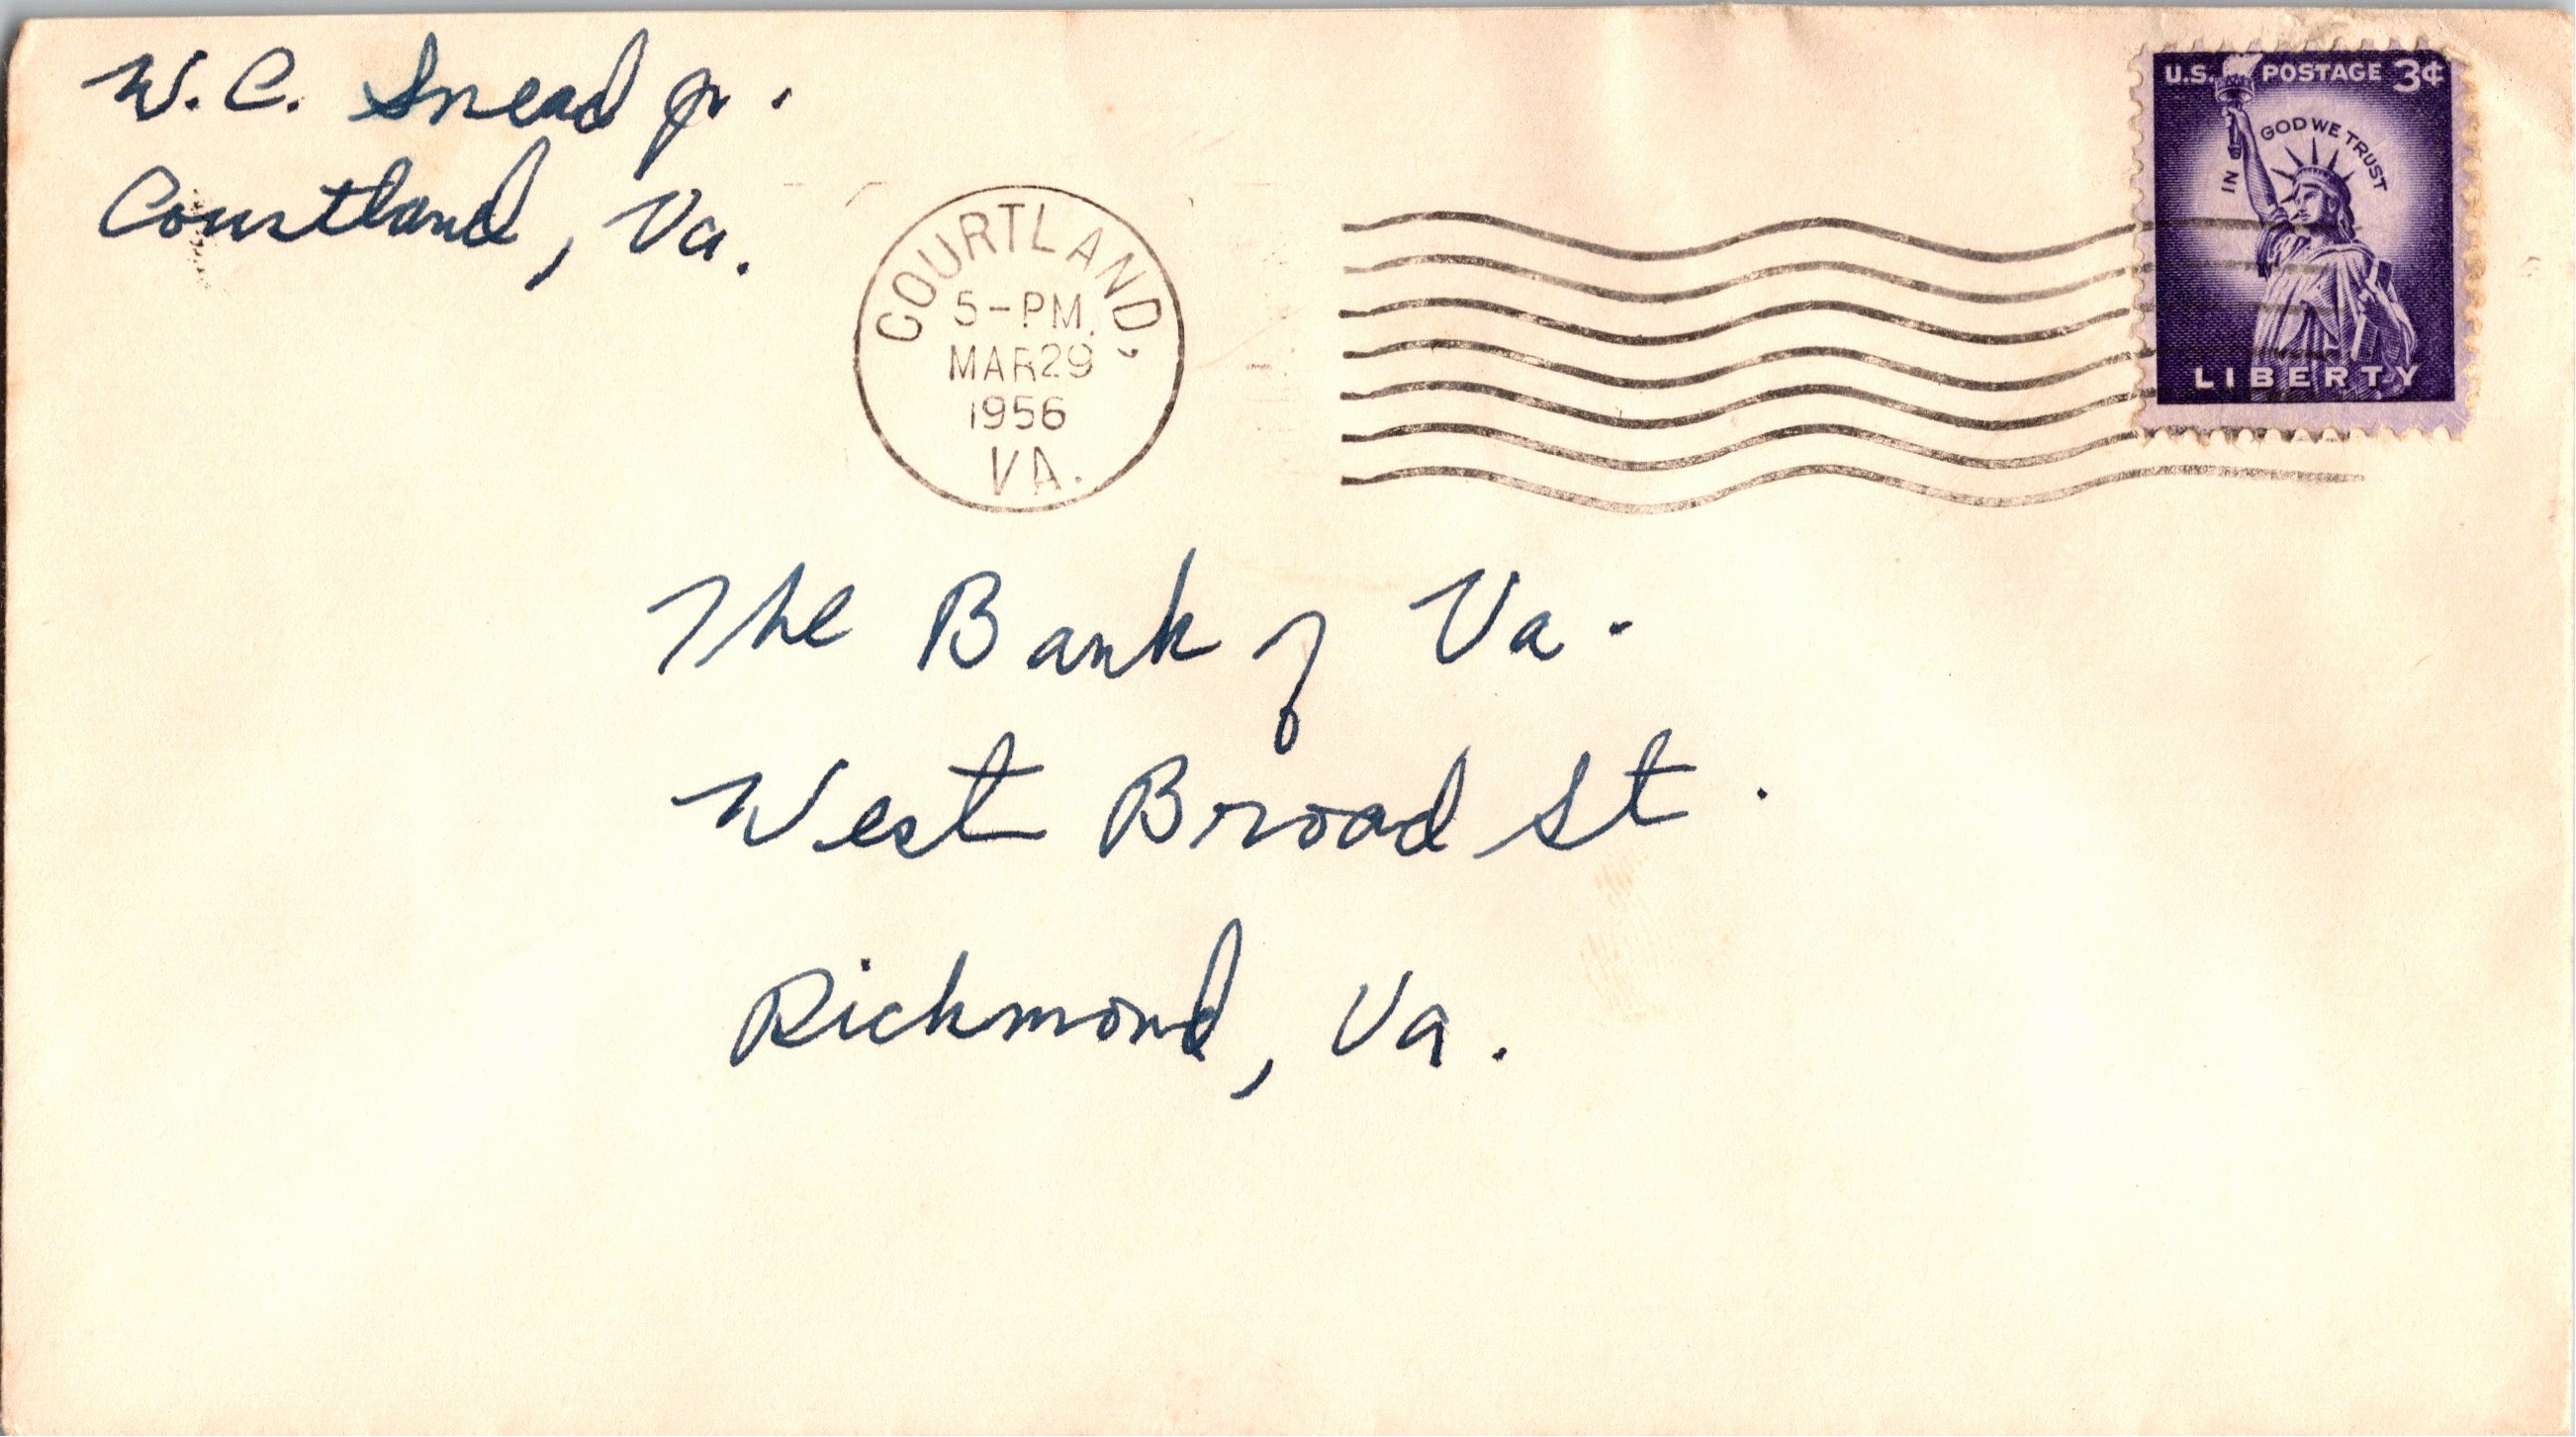 W. C. Snead Jr.
Courtland, Va.
COURTLAND,
5-PM.
MAR 29
1956
VA.
U.S. POSTAGE 3¢
IN GOD WE TRUST
LIBERTY
The Bank of Va.
West Broad St.
Richmond, Va.